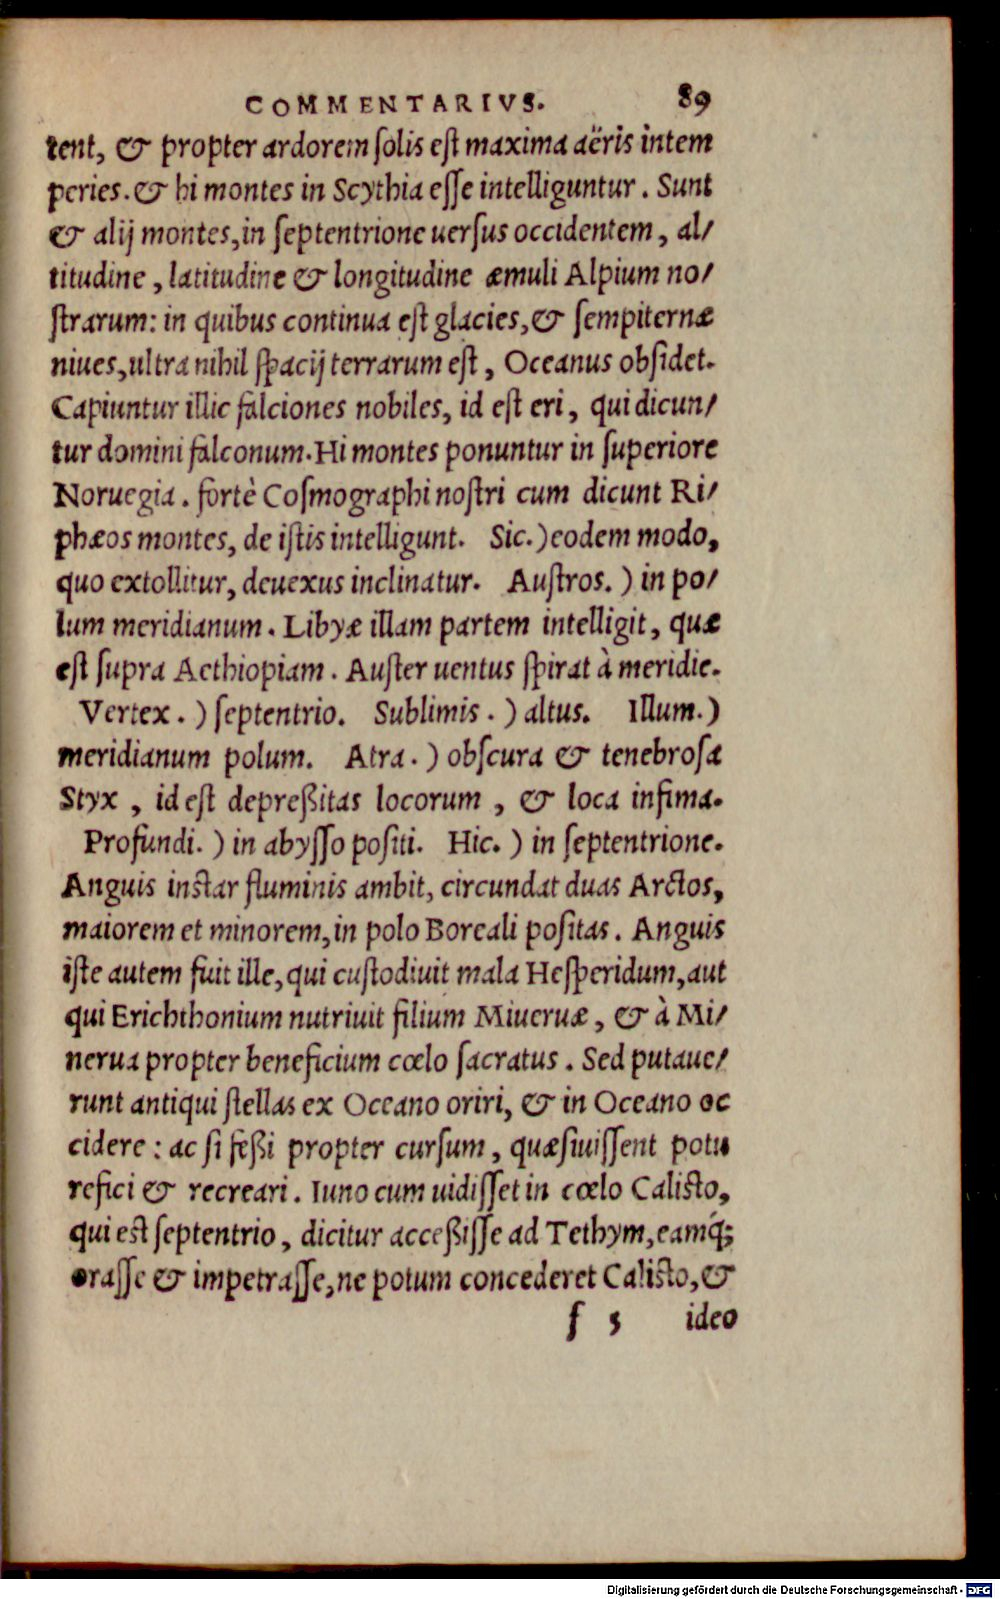 COMMENTARIVS. 89
tent, & propter ardorem ſolis eſt maxima aëris intem
peries. & hi montes in Scythia eſſe intelliguntur. Sunt
& alij montes, in ſeptentrione uerſus occidentem, al/
titudine, latitudine & longitudine æmuli Alpium no/
ſtrarum: in quibus continua eſt glacies, & ſempiternæ
niues, ultra nihil ſpacij terrarum eſt, Oceanus obſidet.
Capiuntur illic falciones nobiles, id eſt eri, qui dicun/
tur domini falconum. Hi montes ponuntur in ſuperiore
Noruegia. fortè Coſmographi noſtri cum dicunt Ri/
phæos montes, de iſtis intelligunt. Sic.) eodem modo,
quo extollitur, deuexus inclinatur. Auſtros.) in po/
lum meridianum. Libyæ illam partem intelligit, quæ
eſt ſupra Aethiopiam. Auſter uentus ſpirat à meridie.
Vertex.) ſeptentrio. Sublimis.) altus. Illum.)
meridianum polum. Atra.) obſcura & tenebroſa
Styx, id eſt depreßitas locorum, & loca infima.
Profundi.) in abyſſo poſiti. Hic.) in ſeptentrione.
Anguis inſtar fluminis ambit, circundat duas Arctos,
maiorem et minorem, in polo Boreali poſitas. Anguis
iſte autem fuit ille, qui cuſtodiuit mala Heſperidum, aut
qui Erichthonium nutriuit filium Miueruæ, & à Mi/
nerua propter beneficium cœlo ſacratus. Sed putaue/
runt antiqui ſtellas ex Oceano oriri, & in Oceano oc
cidere: ac ſi feßi propter curſum, quæſiuiſſent potu
refici & recreari. Iuno cum uidiſſet in cœlo Caliſto,
qui eſt ſeptentrio, dicitur acceßiſſe ad Tethym, eamq́;
oraſſe & impetraſſe, ne potum concederet Caliſto, &
f 5 ideo
Digitalisierung gefördert durch die Deutsche Forschungsgemeinschaft - DFG